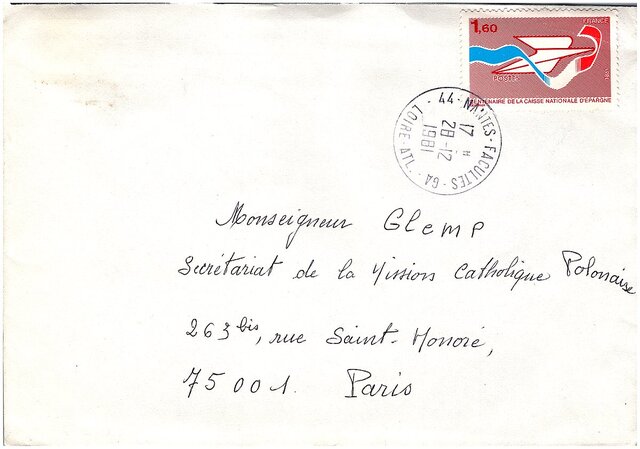 1,60
FRANCE
POSTES
1981
CENTENAIRE DE LA CAISSE NATIONALE D'ÉPARGNE
44 - NANTES - FACULTES - GA - LOIRE-ATL.
17 H
28-12
1981
Monseigneur Glemp
Secrétariat de la Mission Catholique Polonaise
263 bis, rue Saint-Honoré,
75001. Paris